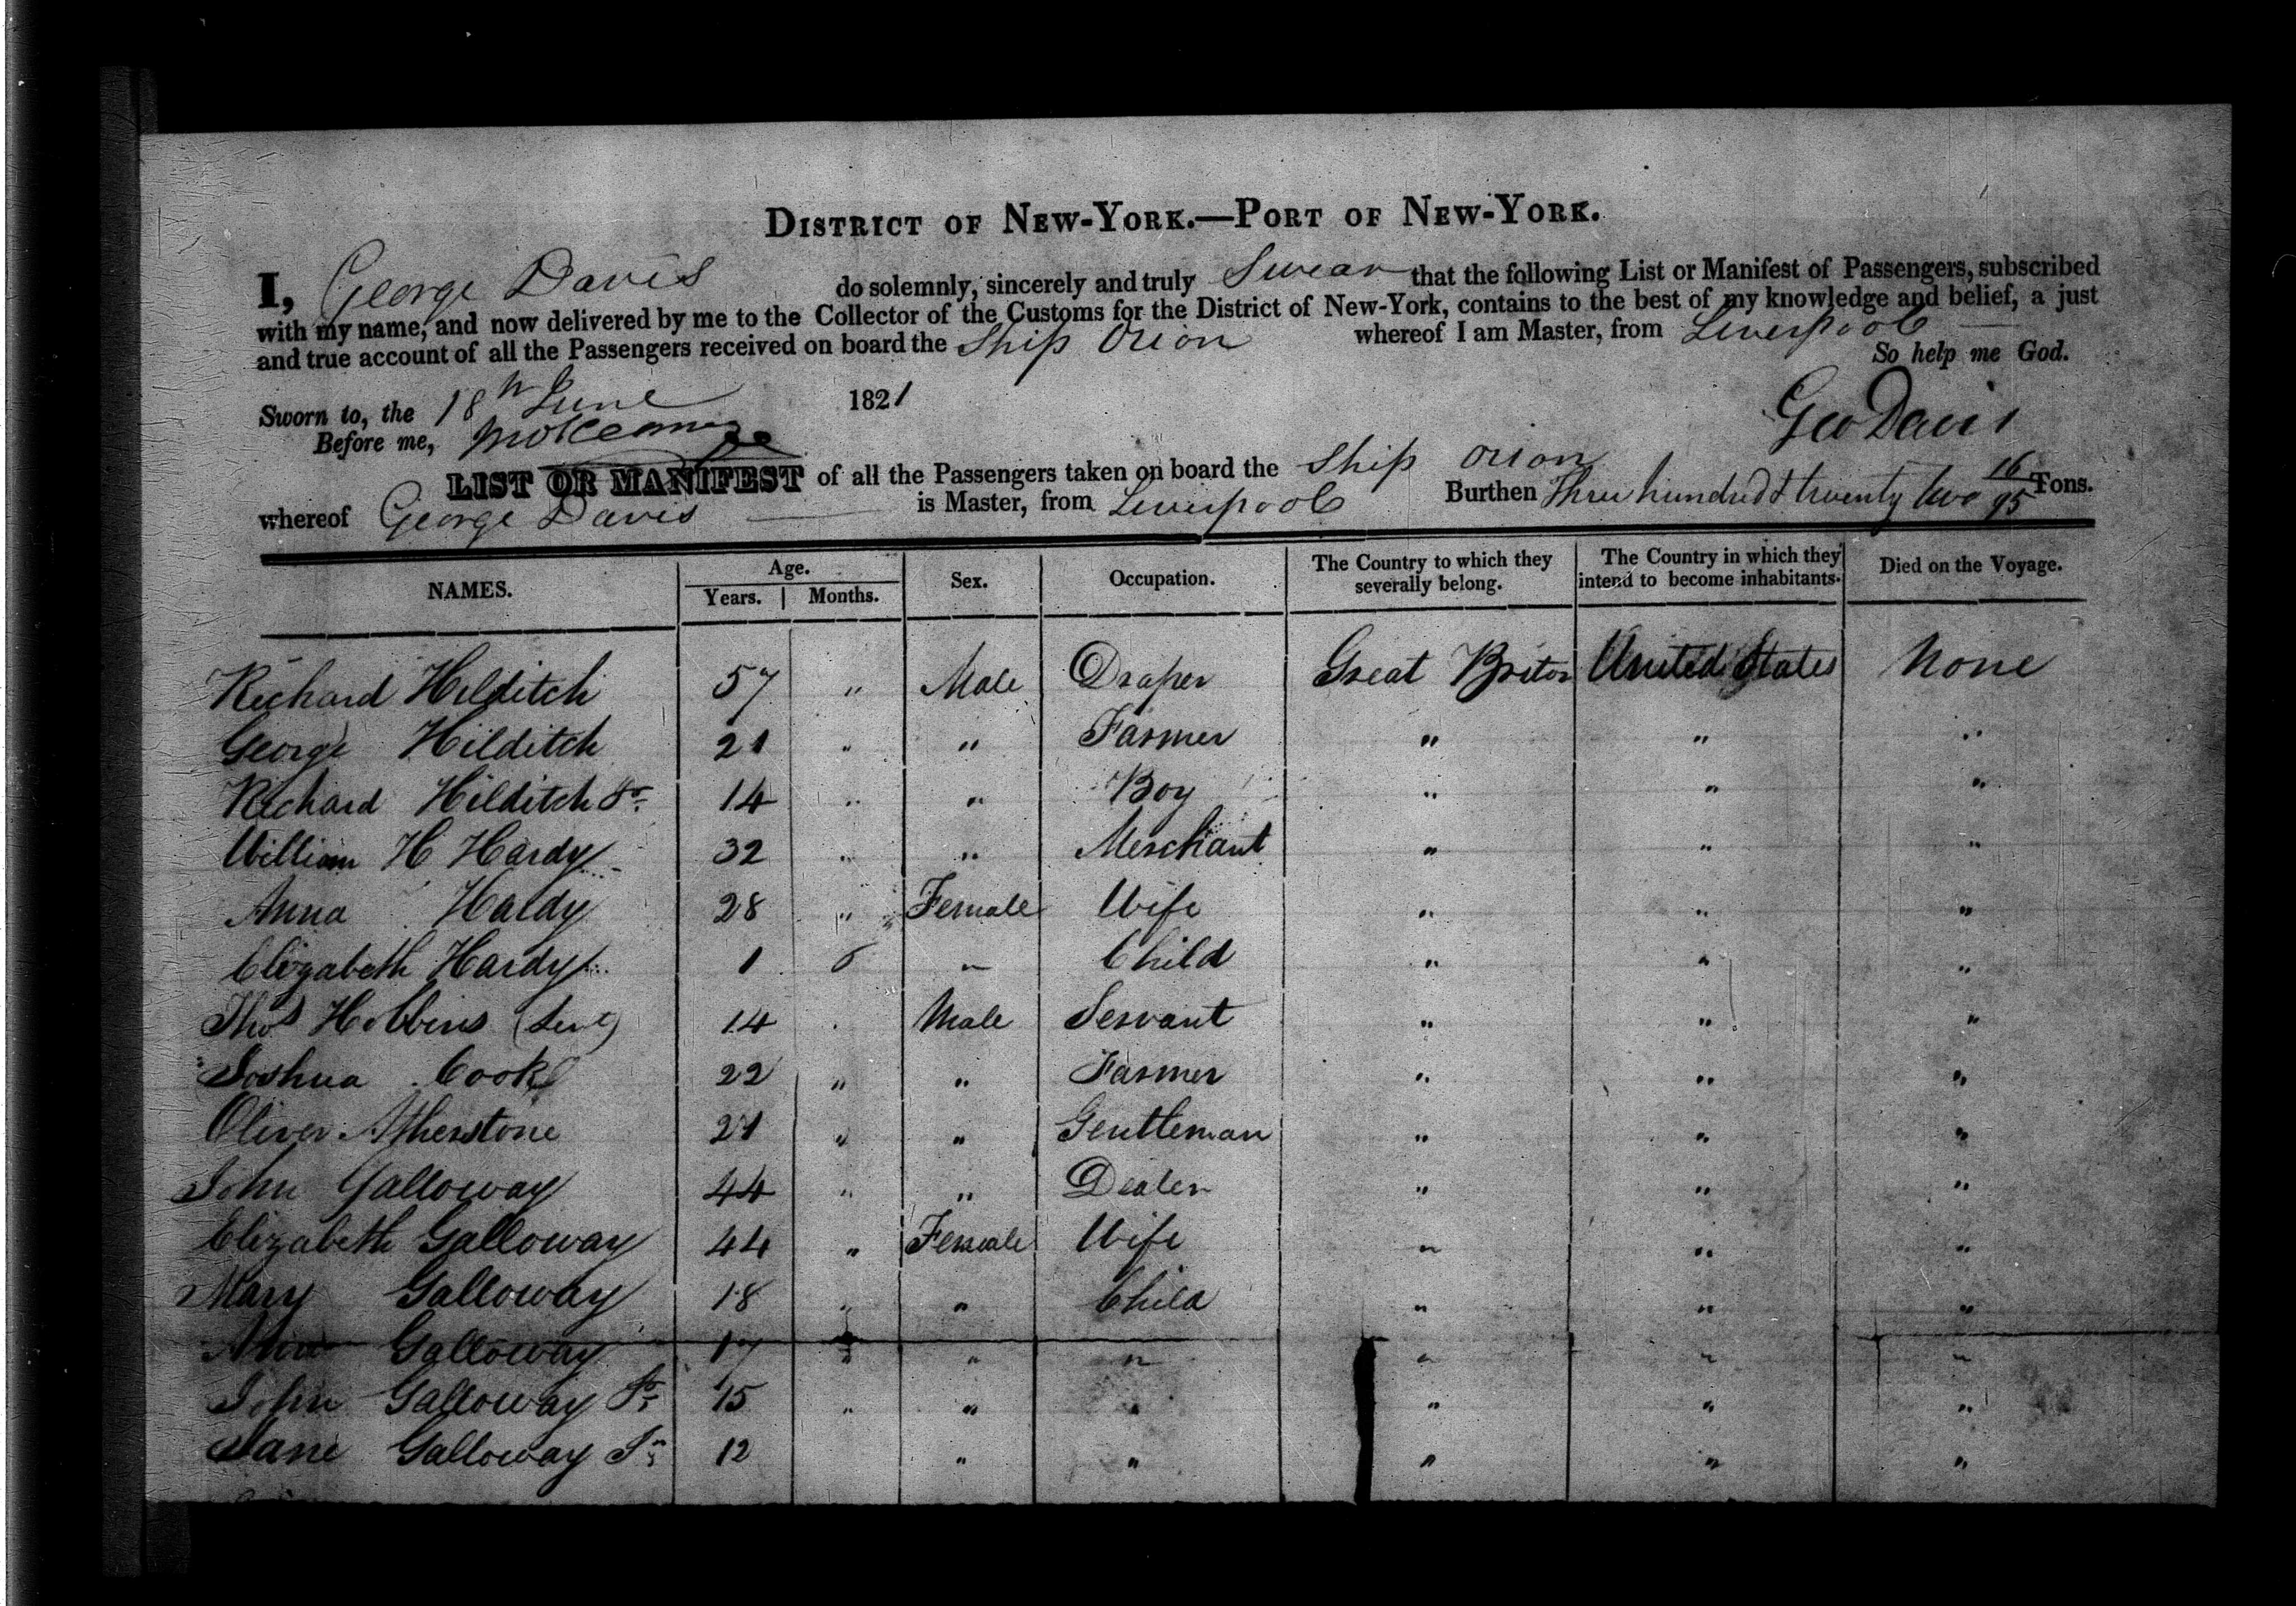 DISTRICT OF NEW-YORK.—PORT OF NEW-YORK.
I, George Davis do solemnly, sincerely and truly Swear that the following List or Manifest of Passengers, subscribed
with my name, and now delivered by me to the Collector of the Customs for the District of New-York, contains to the best of my knowledge and belief, a just
and true account of all the Passengers received on board the Ship Orion whereof I am Master, from Liverpool
So help me God.
Sworn to, the 18th June 1821
Geo Davis
Before me,
LIST OR MANIFEST of all the Passengers taken on board the Ship Orion
whereof George Davis is Master, from Liverpool Burthen Three hundred & twenty two 16/95 Tons.
NAMES. Age. Years. Months. Sex. Occupation. The Country to which they severally belong. The Country in which they intend to become inhabitants. Died on the Voyage.
Richard Hilditch 57 " Male Draper Great Briton United States None
George Hilditch 21 " " Farmer " " "
Richard Hilditch Jr. 14 " " Boy " " "
William H Hardy 32 " " Merchant " " "
Anna Hardy 28 " Female Wife " " "
Elizabeth Hardy 1 6 " Child " " "
Thos Hobbins (Servt) 14 Male Servant " " "
Joshua Cook 22 " " Farmer " " "
Oliver Atherstone 21 " " Gentleman " " "
John Galloway 44 " " Dealer " " "
Elizabeth Galloway 44 " Female Wife " " "
Mary Galloway 18 " " Child " " "
Ann Galloway 17 " " " " " "
John Galloway Jr. 15 " " " " " "
Jane Galloway Jr. 12 " " " " "